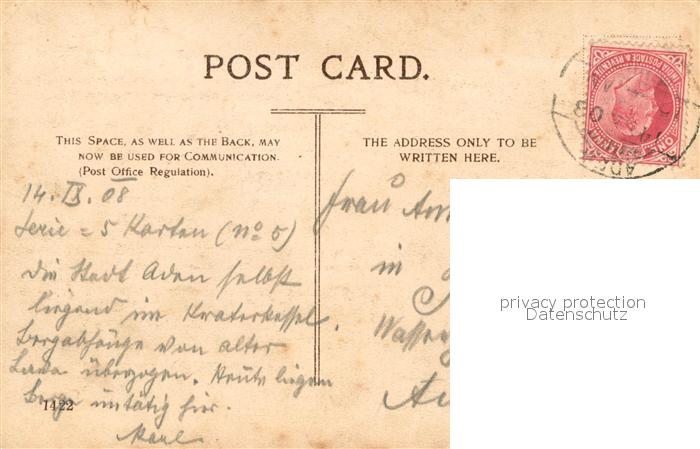 POST CARD.
THIS SPACE, AS WELL AS THE BACK, MAY
NOW BE USED FOR COMMUNICATION.
(Post Office Regulation).
THE ADDRESS ONLY TO BE
WRITTEN HERE.
INDIA POSTAGE & REVENUE
ONE ANNA
14. IX. 08
Serie = 5 Karten (No 5)
Die Stadt Aden selbst
liegend im Kraterkessel.
Bergabhänge von alter
Lava überzogen. Heute liegen
untätig hier.
Karl
1422
Frau
in
privacy protection
Datenschutz